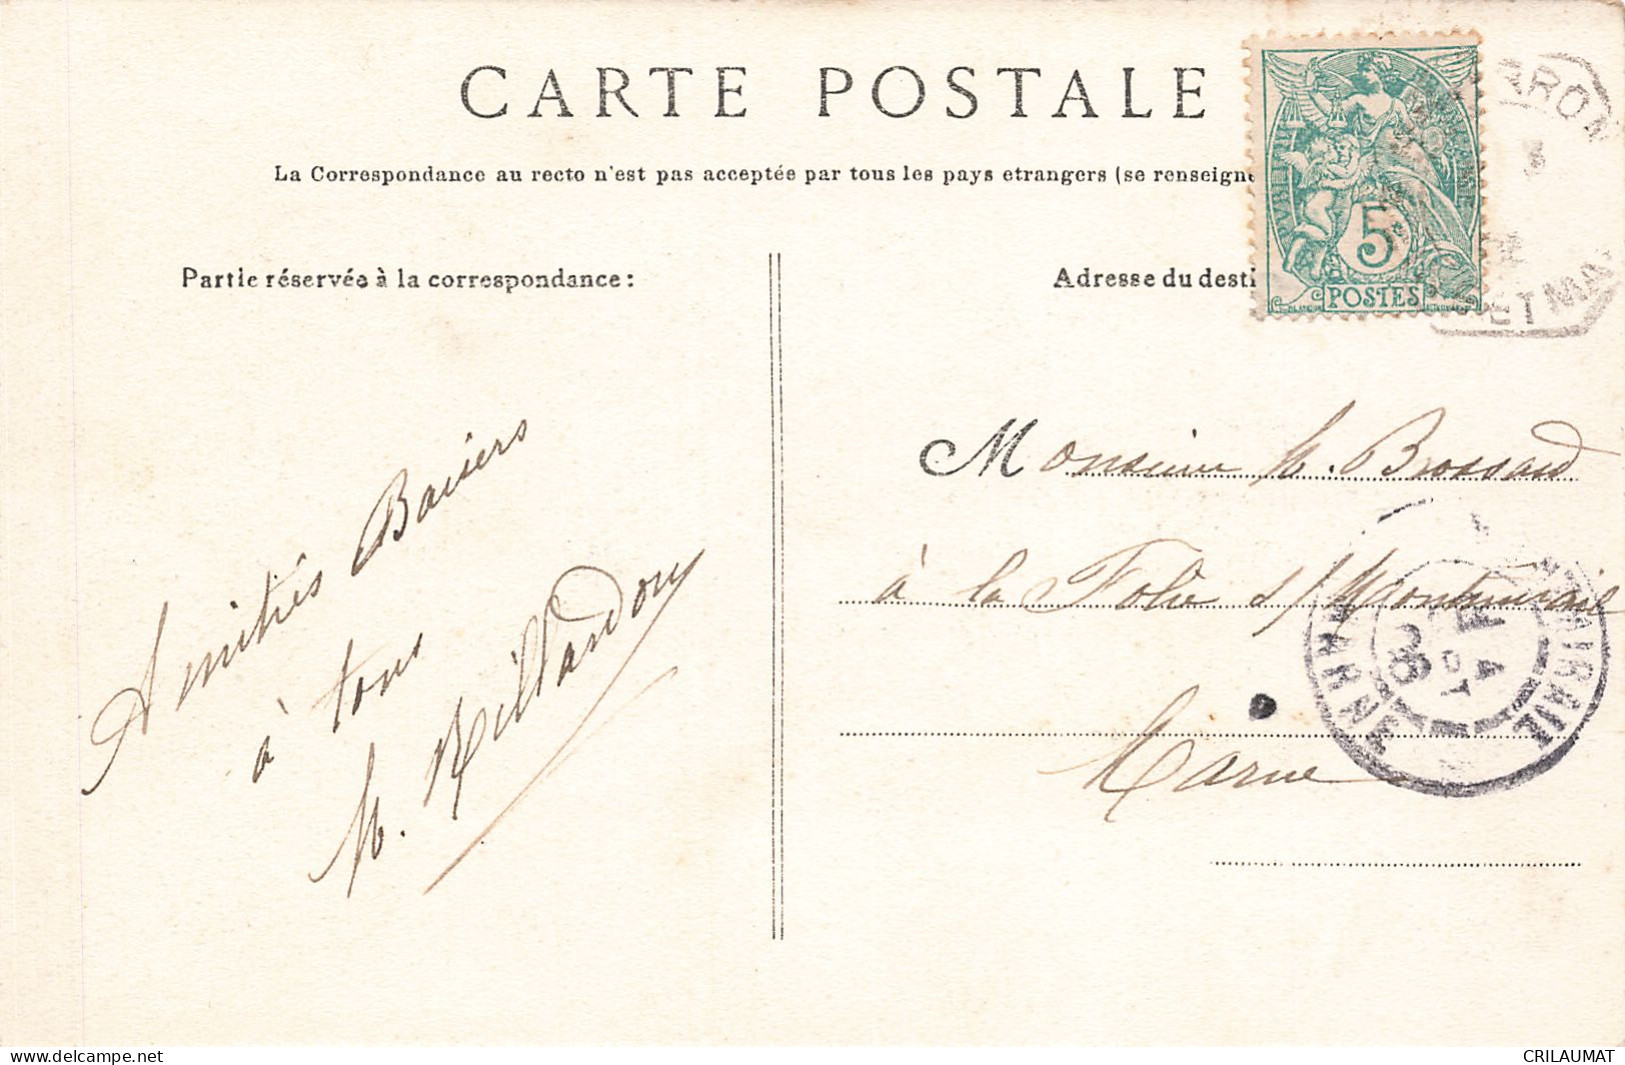 CARTE POSTALE
La Correspondance au recto n'est pas acceptée par tous les pays etrangers (se renseigne
Partie réservée à la correspondance :
Adresse du desti
5
POSTES
ARON
ET MA
Amitiés Baisers
à tous
Monsieur M. Brossard
à la Folie s/ Montmirail
Marne
MONTMIRAIL
MARNE
4
08
CRILAUMAT